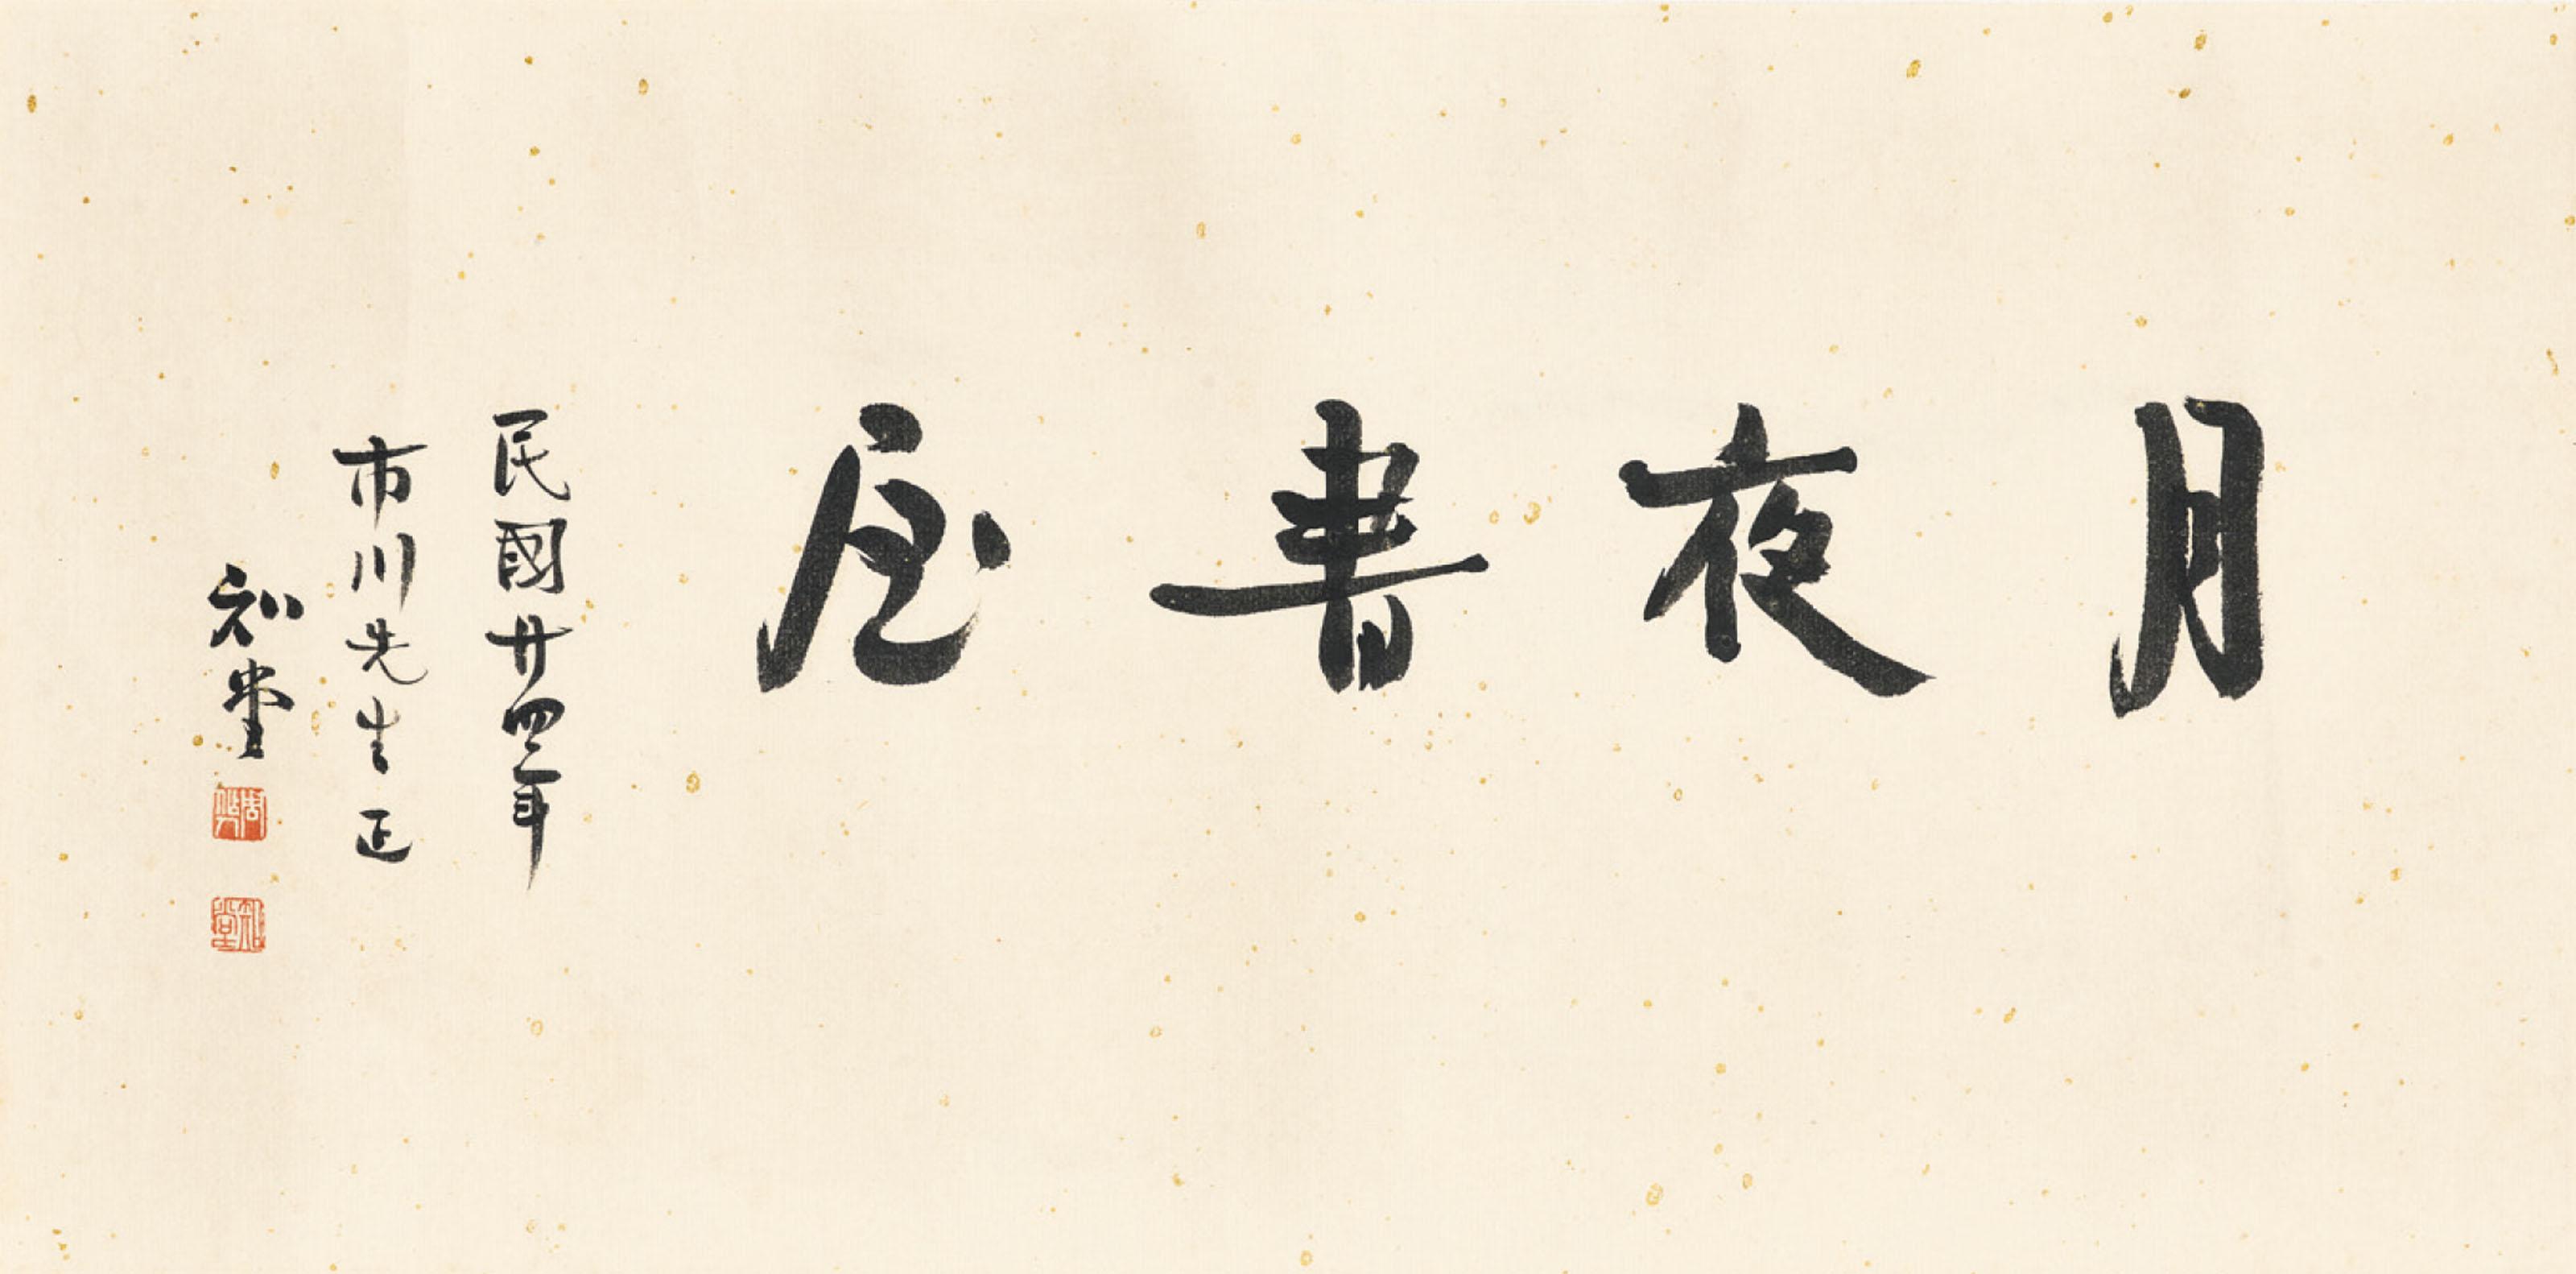 月夜書屋
民國廿四年
市川先生正
知堂
知堂